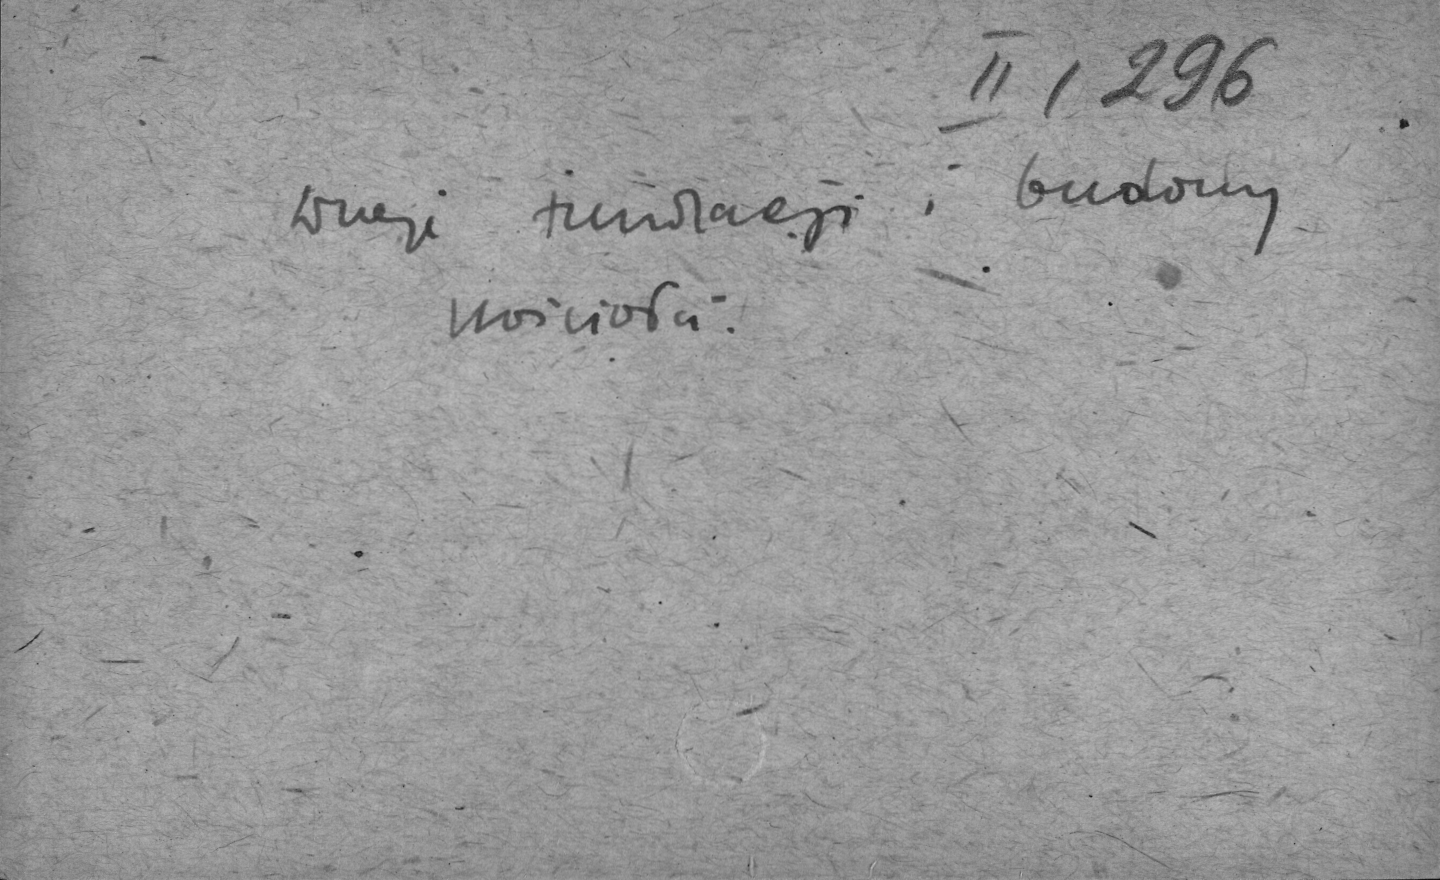 II, 296
fundacji i budowy
kościoła.